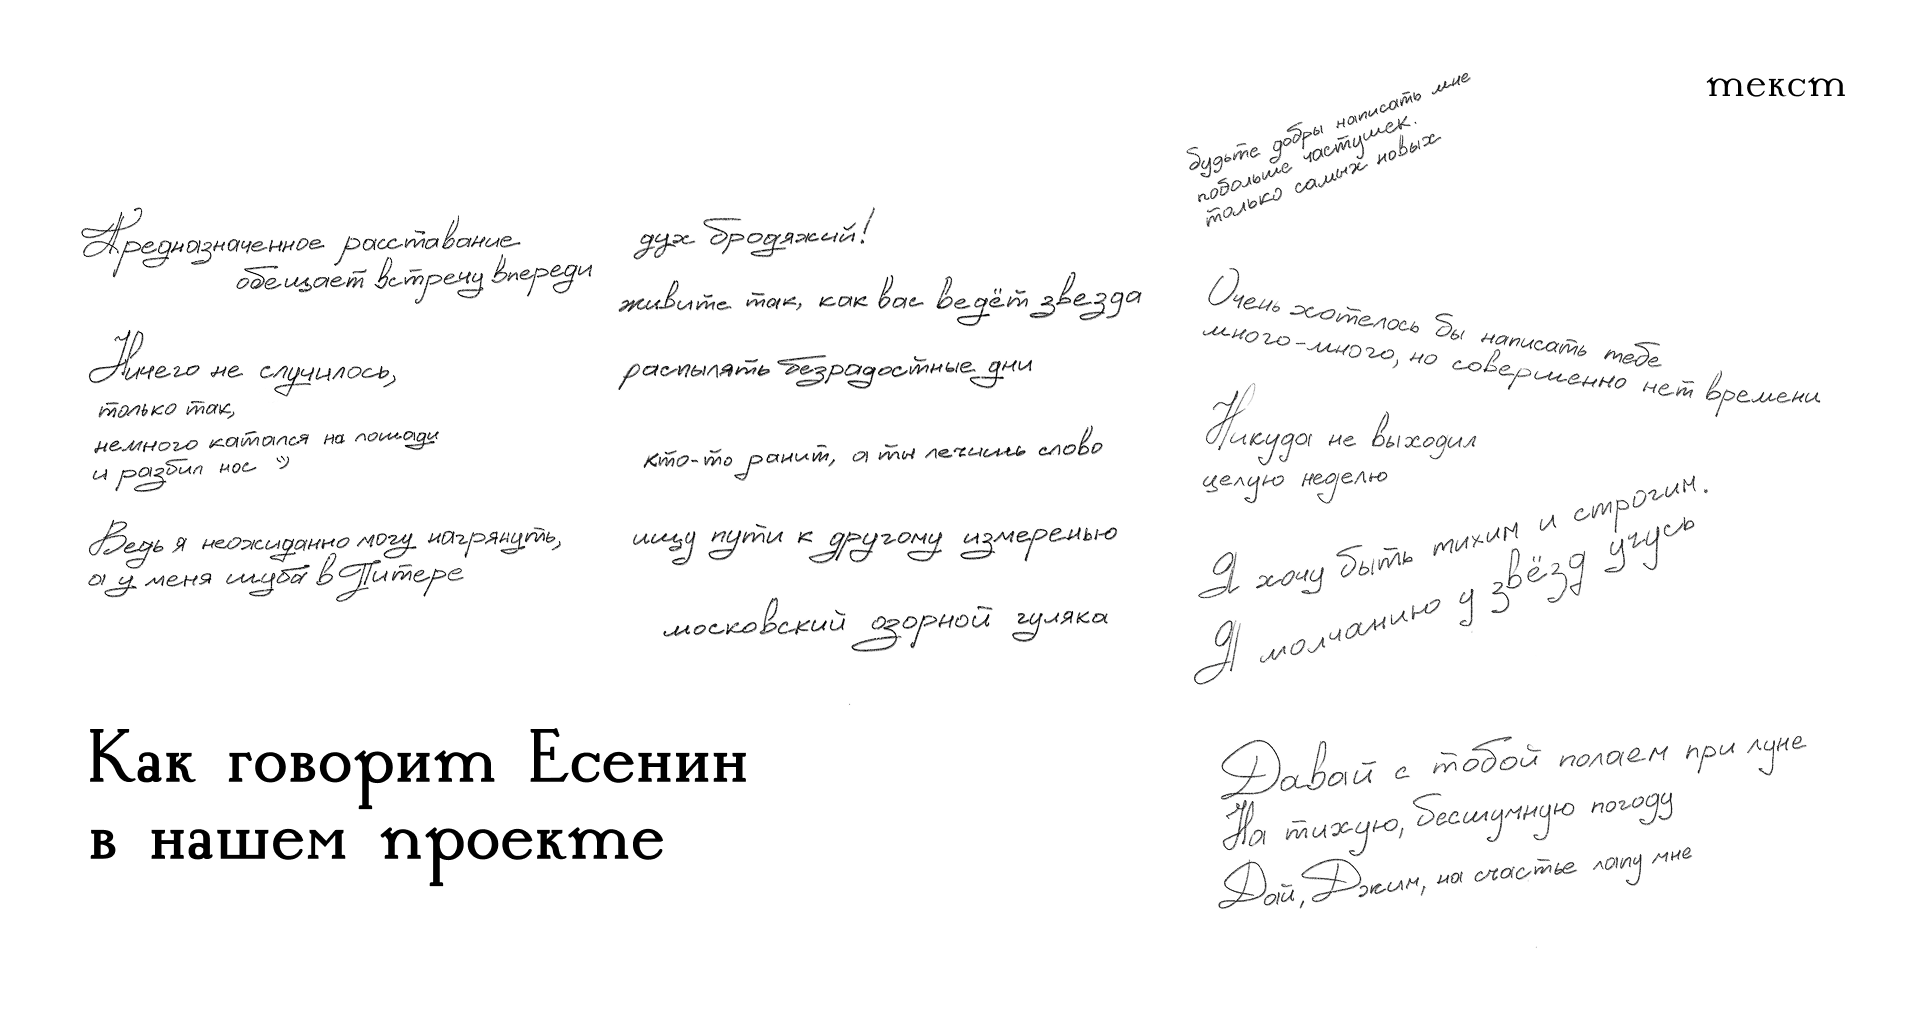 текст
Предназначенное расставание
обещает встречу впереди
Ничего не случилось,
только так,
немного катался на лошади
и разбил нос :)
Ведь я неожиданно могу нагрянуть,
а у меня шуба в Питере
дух бродяжий!
живите так, как вас ведёт звезда
распылять безрадостные дни
кто-то ранит, а ты лечишь слово
ищу пути к другому измеренью
московский озорной гуляка
будьте добры написать мне
побольше частушек.
только самых новых
Очень хотелось бы написать тебе
много-много, но совершенно нет времени
Никуда не выходил
целую неделю
Я хочу быть тихим и строгим.
Я молчанию у звёзд учусь
Давай с тобой полаем при луне
На тихую, бесшумную погоду
Дай, Джим, на счастье лапу мне
Как говорит Есенин
в нашем проекте